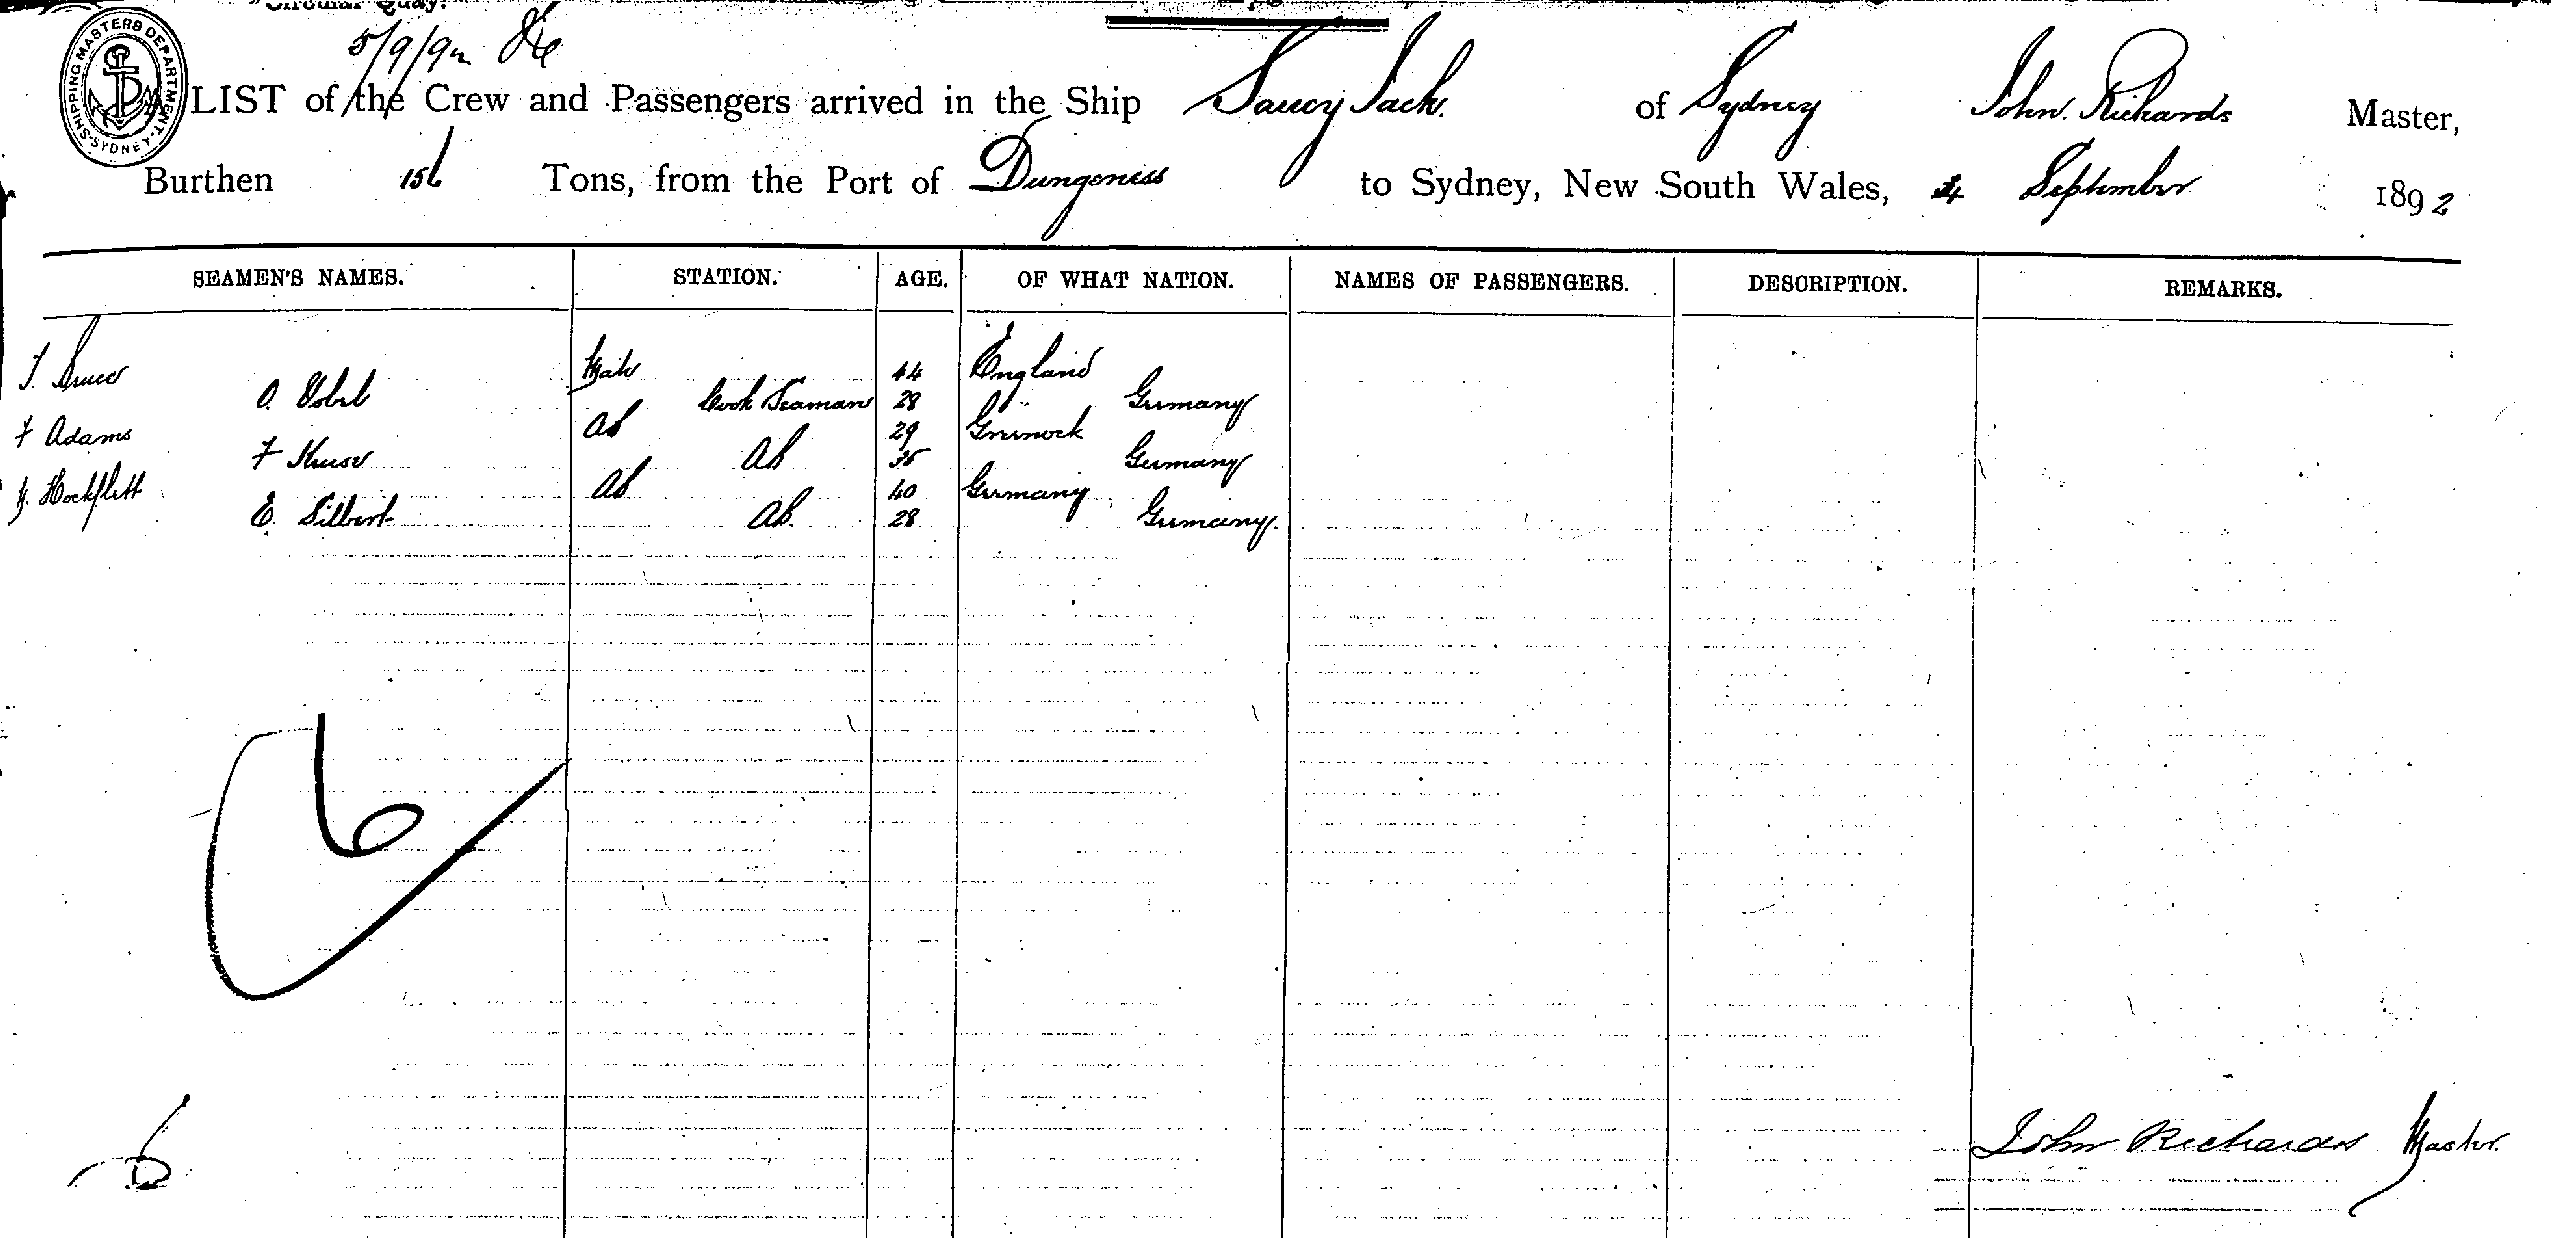 Circular Quay.
SHIPPING MASTERS DEPARTMENT. SYDNEY
5/9/92
LIST of the Crew and Passengers arrived in the Ship Saucy Jack. of Sydney John Richards Master,
Burthen 156 Tons, from the Port of Dungeness to Sydney, New South Wales, 4 September 1892
SEAMEN'S NAMES. STATION. AGE. OF WHAT NATION. NAMES OF PASSENGERS. DESCRIPTION. REMARKS.
Mate 44 England
O. Cook Seaman 28 Germany
F Adams AB 29 Greenock
F Kruse AB 35 Germany
AB 40 Germany
E. Silbert AB. 28 Germany.
6
John Richards Master.
6